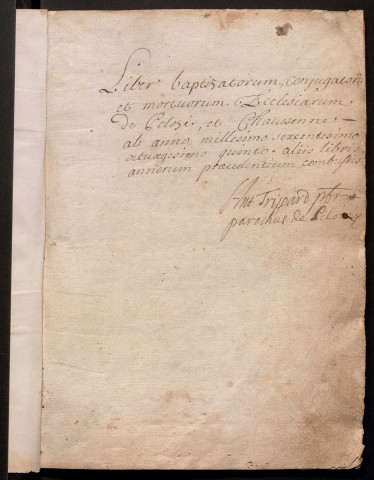 Liber baptizatorum, conjugatorum
et mortuorum Ecclesiarum
de Pelosi, et Chaussenne
ab anno millesimo sexcentesimo
octuagesimo quinto aliis libris
annorum praecedentium combustis
Ant Trippard pbr
parochus de Pelousey